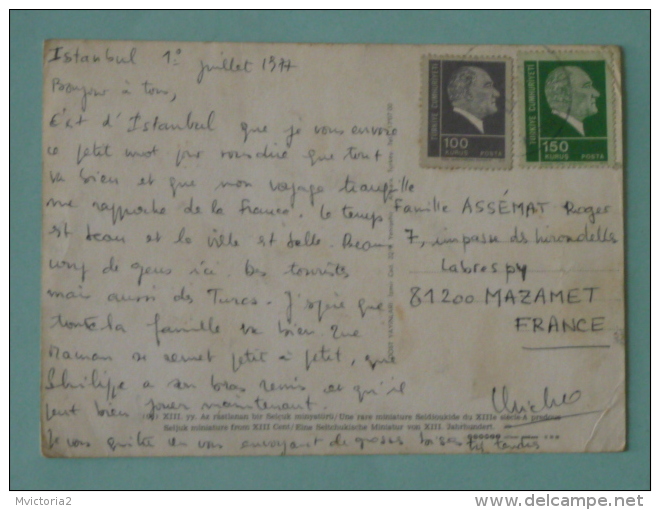 Istanbul 1° juillet 1977
Bonjour à tous,
C'est d'Istanbul que je vous envoie
ce petit mot pour vous dire que tout
va bien et que mon voyage tranquille
me rapproche de la France. Le temps
est beau et la ville est belle. Beau
coup de gens ici. Des touristes
mais aussi des Turcs. J'espère que
toute la famille va bien. Que
Maman se remet petit à petit, que
Philippe a son bras remis et qu'il
peut bien jouer maintenant.
Je vous quitte en vous envoyant de grosses bises
très tendres
Famille ASSÉMAT Roger
7, impasse des hirondelles
Labrespy
81200 MAZAMET
FRANCE
TÜRKİYE CUMHURİYETİ
100
KURUŞ POSTA
TÜRKİYE CUMHURİYETİ
150
KURUŞ POSTA
XIII. yy. Az rastlanan bir Selçuk minyatürü/Une rare miniature Seldjoukide du XIIIe siecle-A
Seljuk miniature from XIII Cent/Eine Seltchukische Miniatur von XIII. Jahrhundert.
Mvictoria2
www.delcampe.net